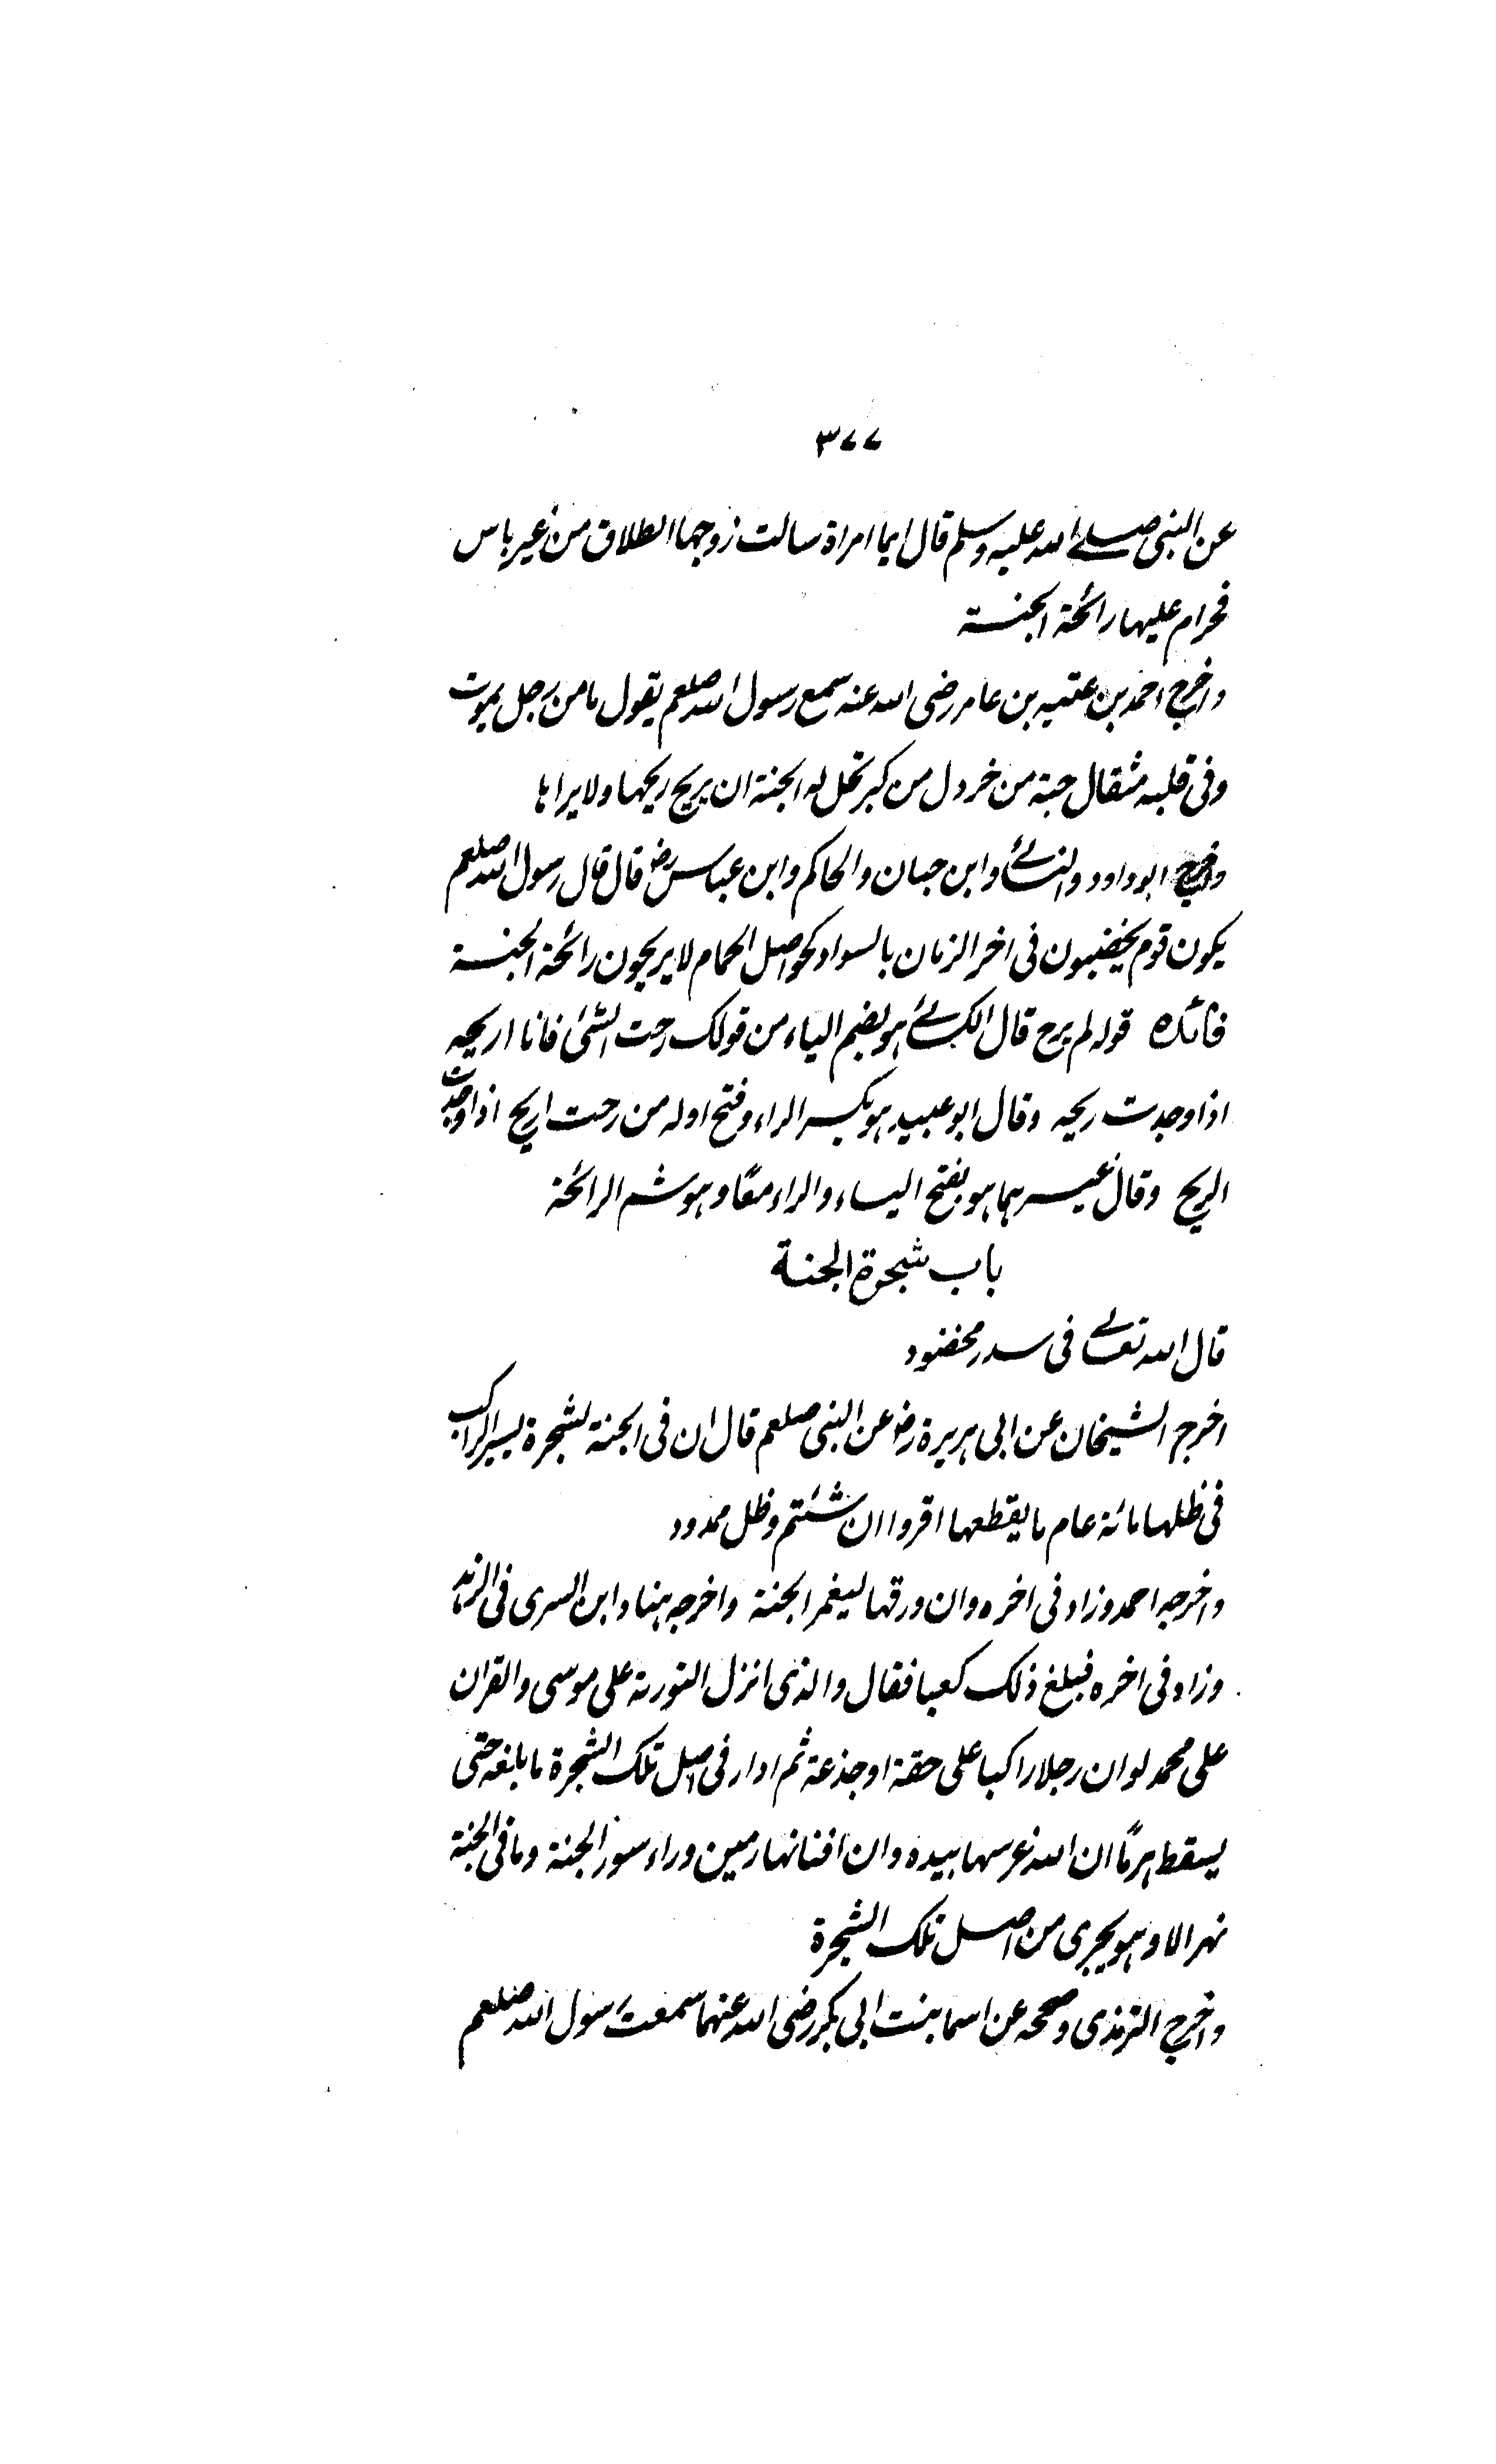 ٣٧٧
عن النبی صلے الله علیه وسلم قال ایما امراة سالت زوجها الطلاق من غیر باس
فحرام علیها رائحة الجنة
واخرج احمد بن عتبه بن عامر رضی الله عنه سمع رسول الله صلعم یقول ما من رجل یموت
وفی قلبه مثقال حبة من خردل من کبر تحل له الجنة ان یریح ریحها ولا یراها
واخرج ابو داود والنسائے وابن حبان والحاکم وابن عباس رض قال قال رسول الله صلعم
یکون قوم یخضبون فی اخر الزمان بالسواد کحواصل الحمام لا یریحون رائحة الجنة
فائدہ قوله لم یرح قال الکسائے هو بضم الیاء من قولک رحت الشئ فانا اریحه
اذا وجدت ریحه وقال ابو عبید هو بکسر الراء وفتح اوله من رحت اریح اذا وجدت
الریح وقال غیرهما هو بفتح الیاء والراء معًا وهو شم الرائحة
باب شجرة الجنة
قال الله تعالے فی سدر مخضود
اخرج الشیخان عن ابی هریرة رض عن النبی صلعم قال ان فی الجنة لشجرة یسیر الراکب
فی ظلها مائة عام ما یقطعها اقروا ان شئتم وظل ممدود
واخرجه احمد وزاد فی اخره وان ورقها لیغمر الجنة واخرجه هناد ابن السری فی الزهد
وزاد فی اخره فبلغ ذلک کعبا فقال والذی انزل التورىة علی موسی والقران
علی محمد لو ان رجلا راکبا علی حقة او جذعة ثم ادار فی اصل تلک الشجرة ما بلغه حتی
یسقط هرمًا ان الله غرسها بیده وان افنانها رمین وراء سور الجنة وما فی الجنة
نهر الا وهو یجری من اصل تلک الشجرة
واخرج الترمذی وصححه عن اسما بنت ابی بکر رضی الله عنهما سمعت رسول الله صلعم